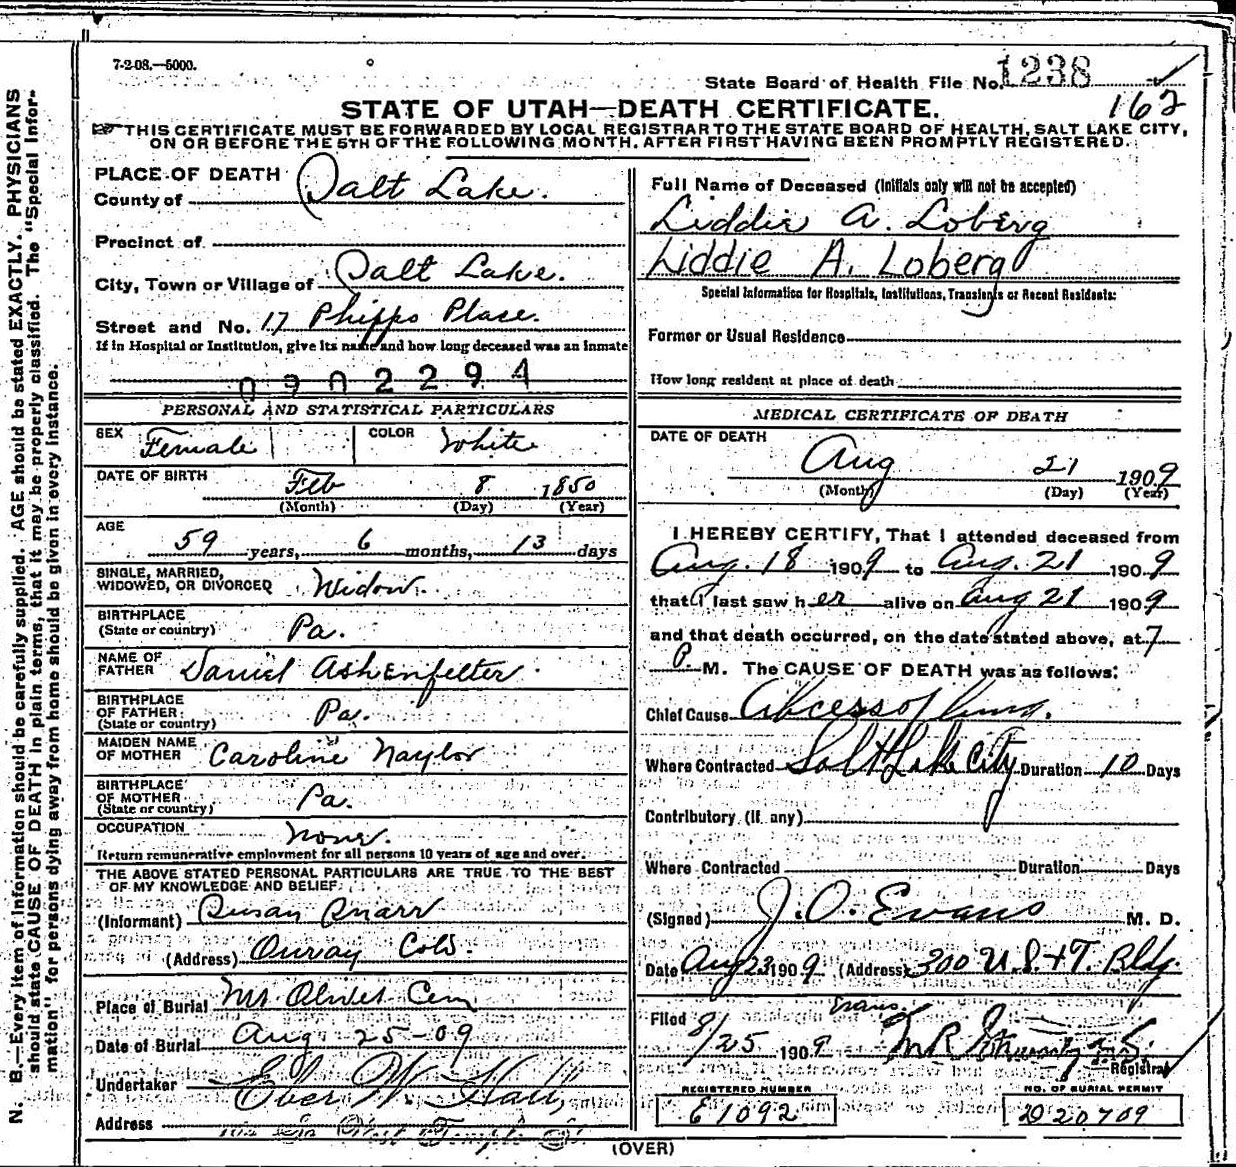 N. B.—Every item of information should be carefully supplied. AGE should be stated EXACTLY. PHYSICIANS
should state CAUSE OF DEATH in plain terms, that it may be properly classified. The "Special Infor-
mation" for persons dying away from home should be given in every instance.
7-2-08.—5000.
State Board of Health File No. 1238
162
STATE OF UTAH—DEATH CERTIFICATE.
THIS CERTIFICATE MUST BE FORWARDED BY LOCAL REGISTRAR TO THE STATE BOARD OF HEALTH, SALT LAKE CITY,
ON OR BEFORE THE 5TH OF THE FOLLOWING MONTH, AFTER FIRST HAVING BEEN PROMPTLY REGISTERED.
PLACE OF DEATH
County of Salt Lake.
Precinct of
City, Town or Village of Salt Lake.
Street and No. 17 Phipps Place.
If in Hospital or Institution, give its name and how long deceased was an inmate
0902294
PERSONAL AND STATISTICAL PARTICULARS
SEX Female COLOR White
DATE OF BIRTH Feb 8 1850
(Month) (Day) (Year)
AGE
59 years, 6 months, 13 days
SINGLE, MARRIED,
WIDOWED, OR DIVORCED Widow.
BIRTHPLACE
(State or country) Pa.
NAME OF
FATHER Daniel Ashenfelter.
BIRTHPLACE
OF FATHER
(State or country) Pa.
MAIDEN NAME
OF MOTHER Caroline Naylor
BIRTHPLACE
OF MOTHER
(State or country) Pa.
OCCUPATION None.
Return remunerative employment for all persons 10 years of age and over.
THE ABOVE STATED PERSONAL PARTICULARS ARE TRUE TO THE BEST
OF MY KNOWLEDGE AND BELIEF.
(Informant) Susan Knarr
(Address) Ouray Colo.
Place of Burial Mt Olivet Cem
Date of Burial Aug 25-09
Undertaker Eber W. Hall,
Address West Temple St.
Full Name of Deceased (Initials only will not be accepted)
Liddie A. Loberg
Liddie A. Loberg
Special Information for Hospitals, Institutions, Transients or Recent Residents:
Former or Usual Residence
How long resident at place of death
MEDICAL CERTIFICATE OF DEATH
DATE OF DEATH
Aug 21 1909
(Month) (Day) (Year)
I HEREBY CERTIFY, That I attended deceased from
Aug. 18 1909 to Aug. 21 1909
that I last saw her alive on Aug 21 1909
and that death occurred, on the date stated above, at 7
P. M. The CAUSE OF DEATH was as follows:
Chief Cause Abcess of lung.
Where Contracted Salt Lake City Duration 10 Days
Contributory (if any)
Where Contracted Duration Days
(Signed) J. O. Evans M. D.
Date Aug 23 1909 (Address) 300 U.S. + T. Bldg.
Evans
Filed 8/25 1909
Registrar
REGISTERED NUMBER NO. OF BURIAL PERMIT
E1092 D20709
(OVER)